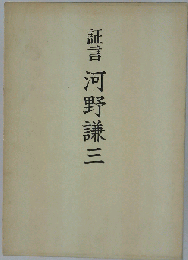 証言
河野謙三